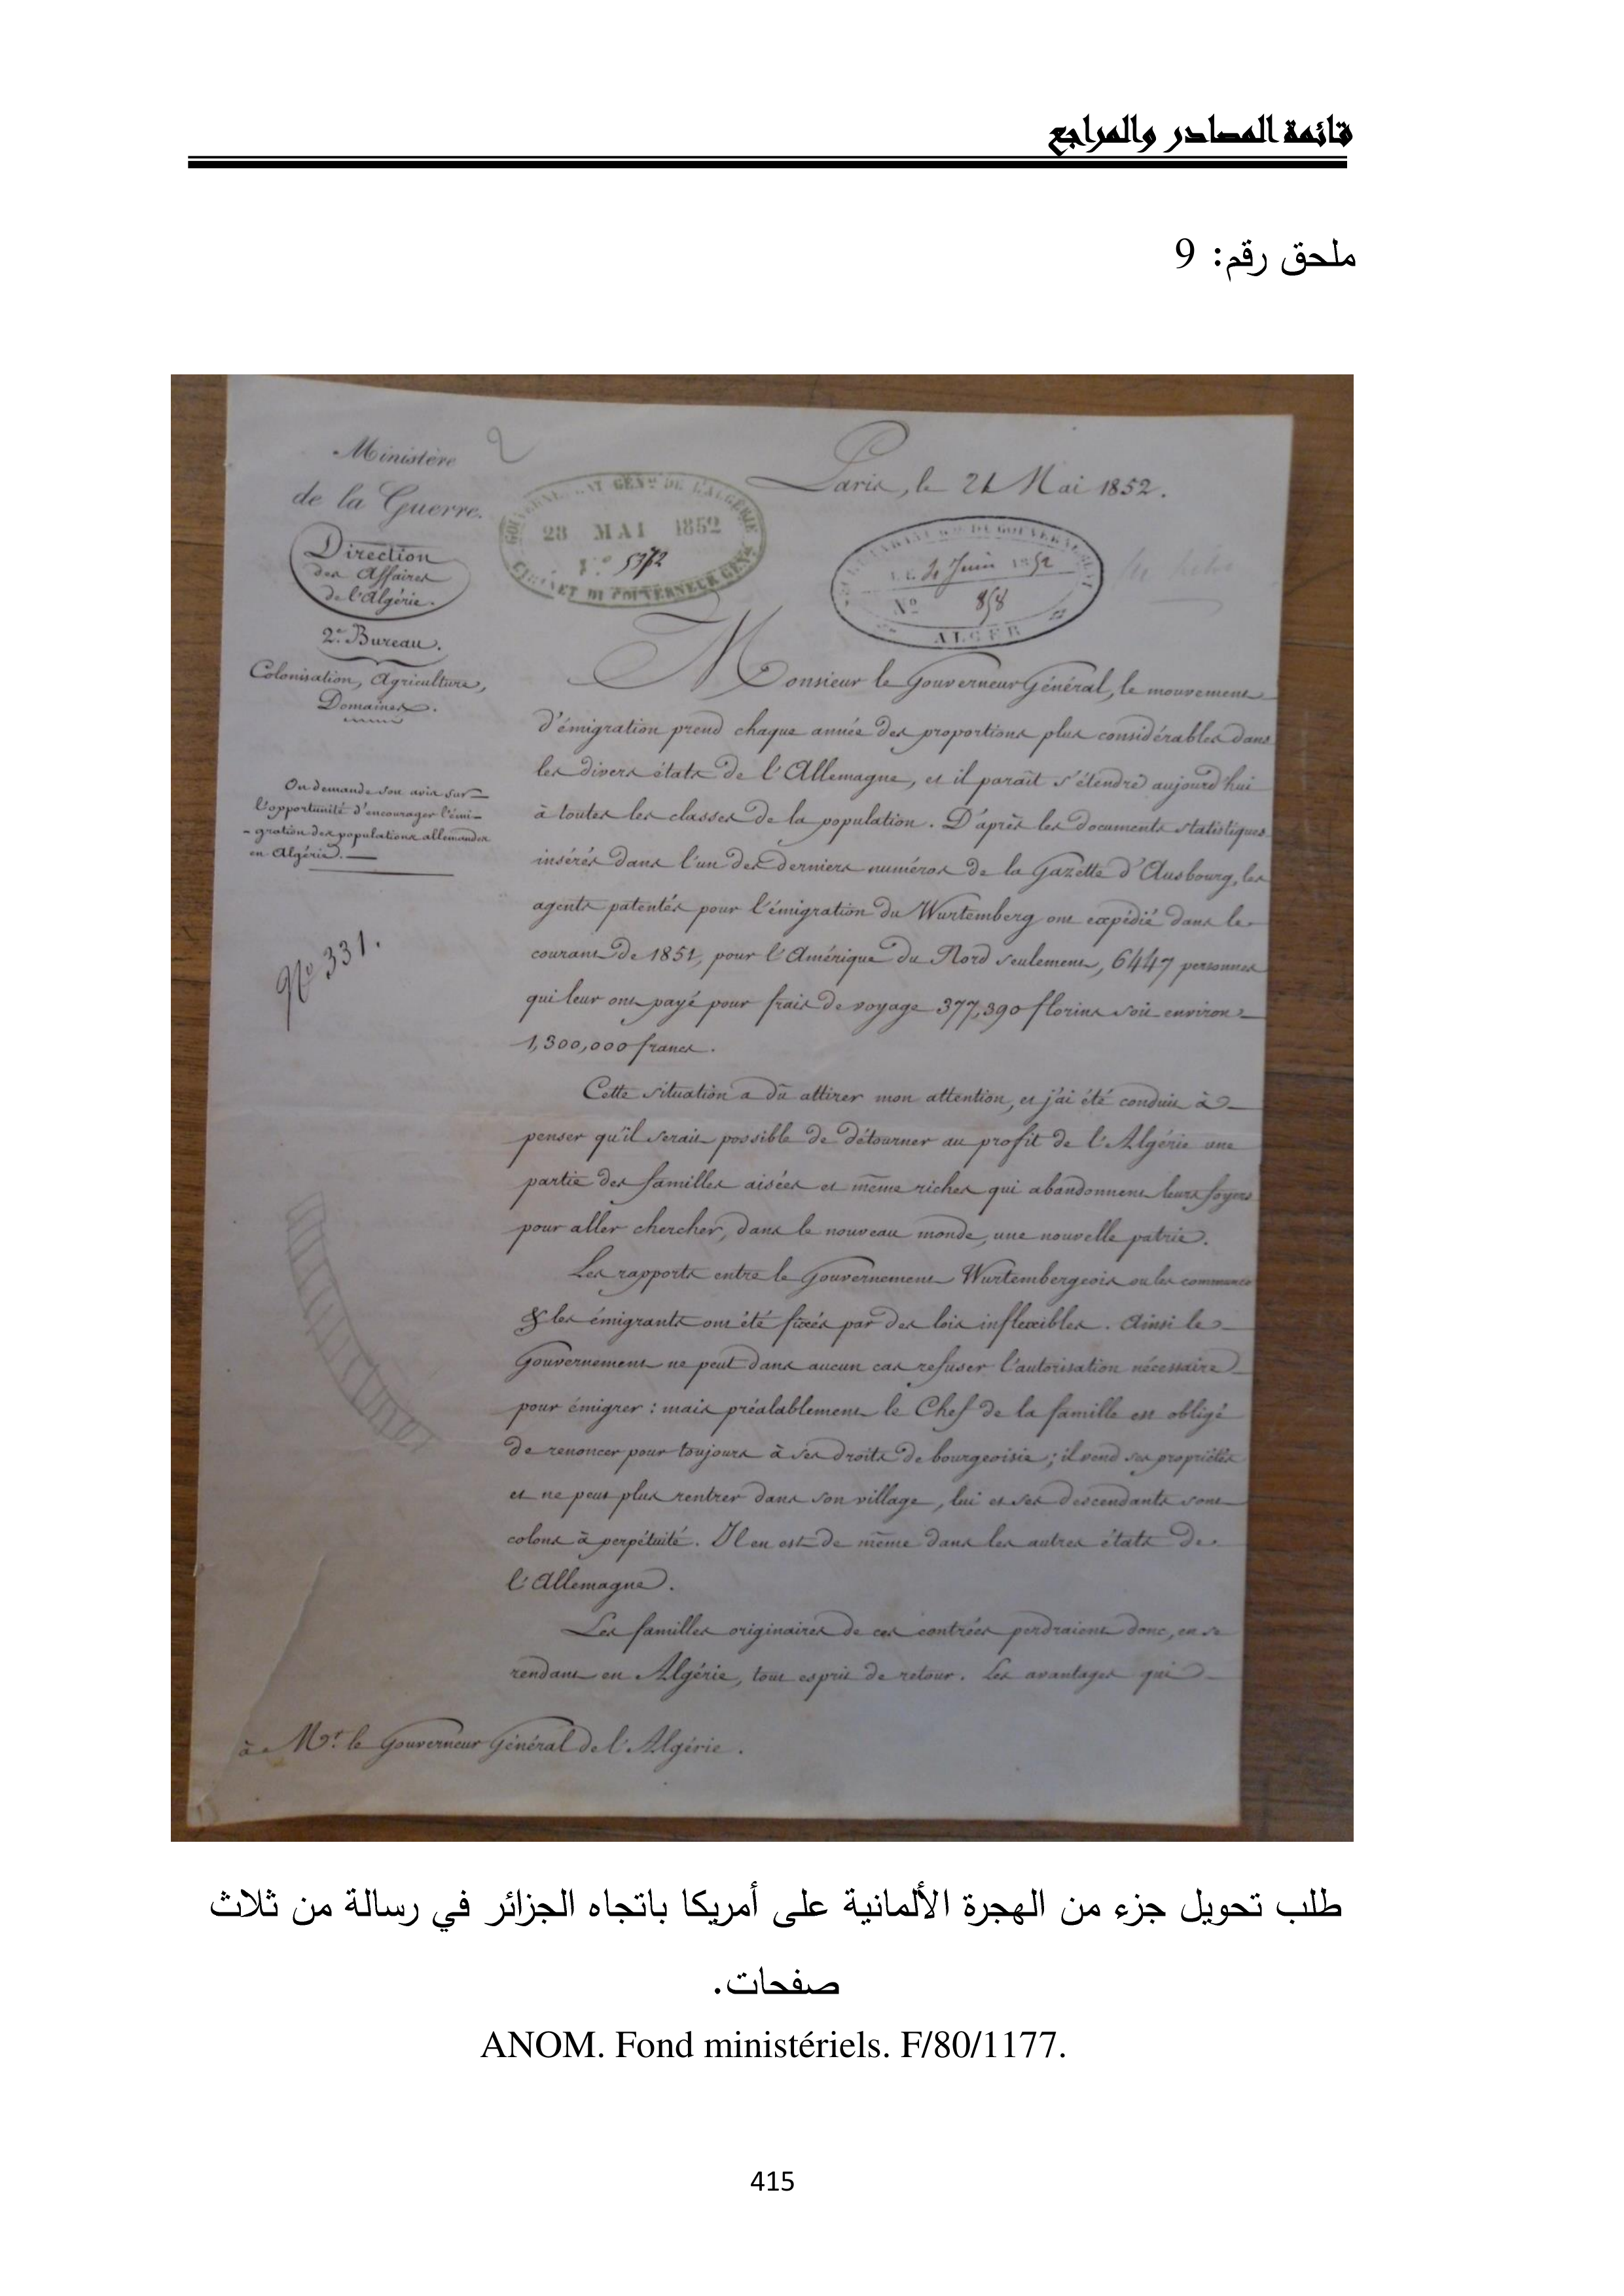 قائمة المصادر والمراجع
ملحق رقم: 9
Ministère
de la Guerre.
Direction
des Affaires
de l'Algérie.
2e. Bureau.
Colonisation, Agriculture,
Domaines.
On demande son avis sur
l'opportunité d'encourager l'émi-
-gration des populations allemandes
en Algérie.
No 331.
2
GOUVERNEMENT GENal DE L'ALGÉRIE
28 MAI 1852
No 5772
CABINET DU GOUVERNEUR GENal
Paris, le 21 Mai 1852.
LE 4 Juin 1852
No 858
ALGER
Monsieur le Gouverneur Général, le mouvement
d'émigration prend chaque année des proportions plus considérables dans
les divers états de l'Allemagne, et il paraît s'étendre aujourd'hui
à toutes les classes de la population. D'après les documents statistiques
insérés dans l'un des derniers numéros de la Gazette d'Ausbourg, les
agents patentés pour l'émigration du Wurtemberg ont expédié dans le
courant de 1851, pour l'Amérique du Nord seulement, 6447 personnes
qui leur ont payé pour frais de voyage 377,390 florins soit environ
1,300,000 francs.
Cette situation a dû attirer mon attention, et j'ai été conduit à
penser qu'il serait possible de détourner au profit de l'Algérie une
partie des familles aisées et même riches qui abandonnent leurs foyers
pour aller chercher, dans le nouveau monde, une nouvelle patrie.
Les rapports entre le Gouvernement Wurtembergeois ou les communes
& les émigrants ont été fixés par des lois inflexibles. Ainsi le
Gouvernement ne peut dans aucun cas refuser l'autorisation nécessaire
pour émigrer : mais préalablement le Chef de la famille est obligé
de renoncer pour toujours à ses droits de bourgeoisie ; il vend ses propriétés
et ne peut plus rentrer dans son village, lui et ses descendants sont
colons à perpétuité. Il en est de même dans les autres états de
l'Allemagne.
Les familles originaires de ces contrées perdraient donc, en se
rendant en Algérie, tout esprit de retour. Les avantages qui
à Mr. le Gouverneur Général de l'Algérie.
طلب تحويل جزء من الهجرة الألمانية على أمريكا باتجاه الجزائر في رسالة من ثلاث
صفحات.
ANOM. Fond ministériels. F/80/1177.
415